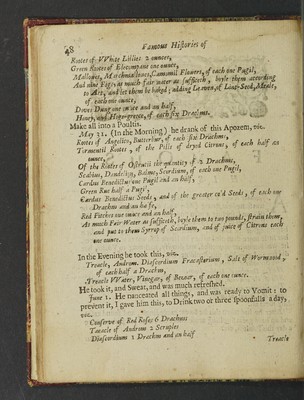 48 Famous Histories of
Rootes of VVhite Lillies 2 ounces,
Green Rootes of Elecampane one ounce,
Mallowes, Marchmallowes, Cammomil Flowers, of each one Pugil,
And nine Figgs, as much Fair water as sufficeth, boyle them according
to Art, and let them be bruised; adding Leaven, of Lint-Seed, Meale,
of each one ounce,
Doves Dung one ounce and an half,
Honey, and Hens-grease, of each six Drachms.
Make all into a Poultis.
May 31. (In the Morning) he drank of this Apozem, viz.
Rootes of Angelica, Butterbur, of each six Drachms,
Tormentil Rootes, of the Pills of dryed Citrons, of each half an
ounce,
Of the Rootes of Ostrutii the quantity of 2 Drachms,
Scabius, Dandelion, Balme, Scordium, of each one Pugil,
Cardus Benedictus one Pugil and an half,
Green Rue half a Pugil,
Cardus Benedictus Seeds, and of the greater cold Seeds, of each one
Drachm and an halfe,
Red Fitches one ounce and an half,
As much Fair Water as sufficeth, boyle them to two pounds, strain them,
and put to them Syrrop of Scordium, and of juice of Citrons each
one ounce.
In the Evening he took this, viz.
Treacle, Androm. Diascordium Fracastorium, Salt of Wormwood,
of each half a Drachm,
Treacle VVater, Vinegar, of Bezoar, of each one ounce.
He took it, and Sweat, and was much refreshed.
June 1. He nauceated all things, and was ready to Vomit: to
prevent it, I gave him this, to Drink two or three spoonfulls a day,
viz.
Conserve of Red Roses 6 Drachms
Treacle of Androm 2 Scruples
Diascordium 1 Drachm and an half
Treacle